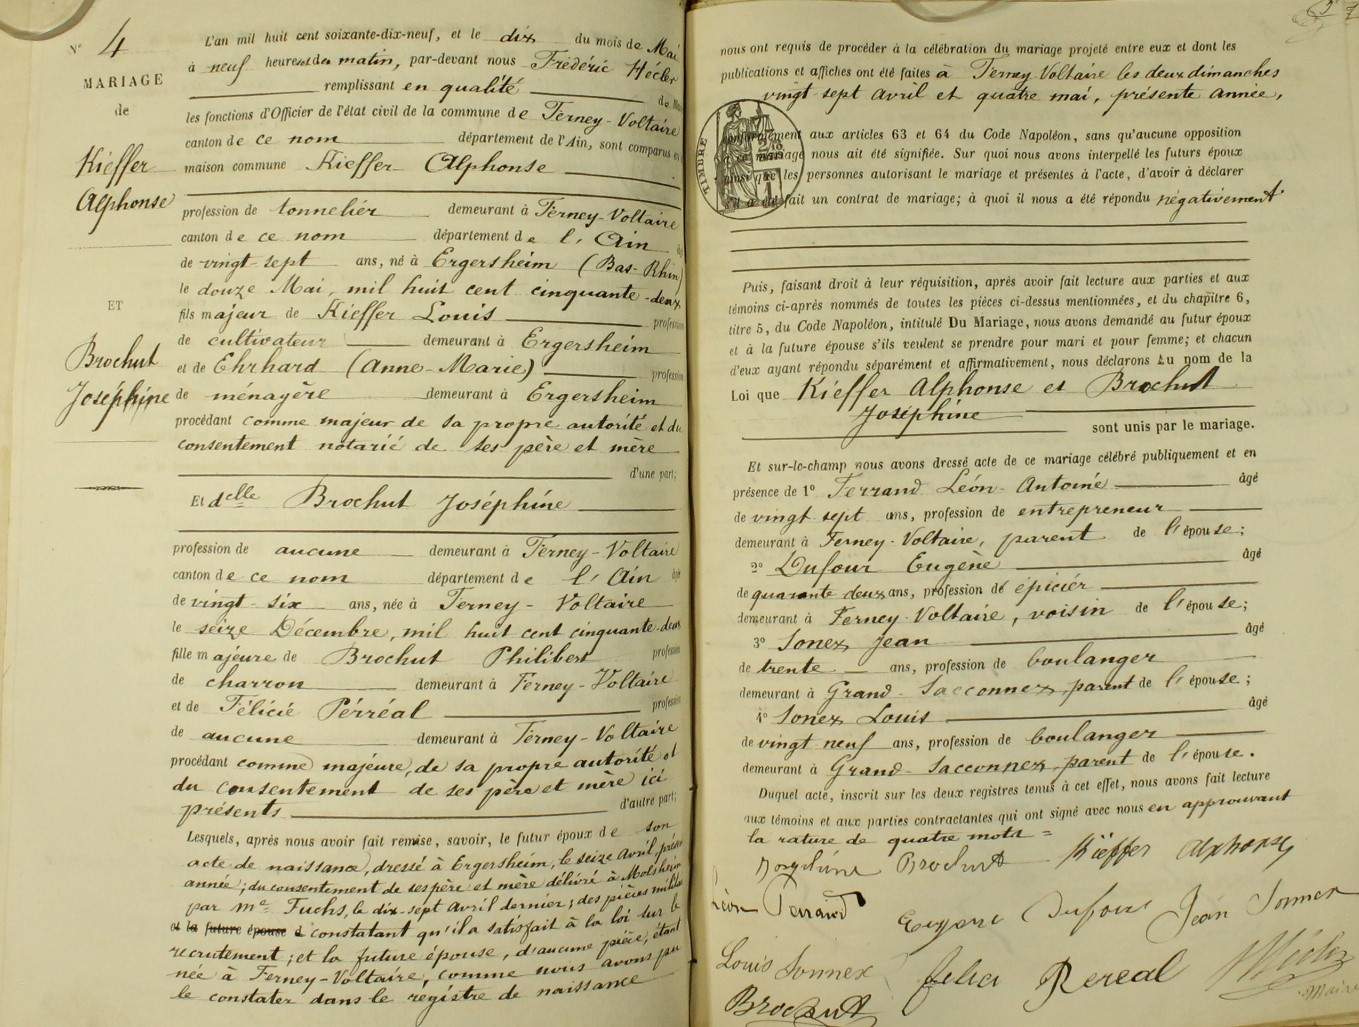 N° 4
MARIAGE
de
Kieffer
Alphonse
ET
Brochut
Joséphine
L'an mil huit cent soixante-dix-neuf, et le dix du mois de Mai
à neuf heures du matin, par-devant nous Frédéric Hécler
remplissant en qualité de
les fonctions d'Officier de l'état civil de la commune de Ferney-Voltaire
canton de ce nom département de l'Ain, sont comparus en
maison commune Kieffer Alphonse
profession de tonnelier demeurant à Ferney-Voltaire
canton de ce nom département de l'Ain
de vingt sept ans, né à Ergersheim (Bas-Rhin)
le douze Mai, mil huit cent cinquante-deux
fils majeur de Kieffer Louis profession
de cultivateur demeurant à Ergersheim
et de Ehrhard (Anne-Marie) profession
de ménagère demeurant à Ergersheim
procédant comme majeur de sa propre autorité et du
consentement notarié de ses père et mère
d'une part;
Et delle Brochut Joséphine
profession de aucune demeurant à Ferney-Voltaire
canton de ce nom département de l'Ain âgée
de vingt-six ans, née à Ferney-Voltaire
le seize Décembre, mil huit cent cinquante-deux
fille majeure de Brochut Philibert profession
de charron demeurant à Ferney-Voltaire
et de Félicié Pérréal profession
de aucune demeurant à Ferney-Voltaire
procédant comme majeure, de sa propre autorité et
du consentement de ses père et mère ici
présents d'autre part;
Lesquels, après nous avoir fait remise, savoir, le futur époux de son
acte de naissance, dressé à Ergersheim, le seize Avril, présente
année; du consentement de ses père et mère délivré à Molsheim
par Me Fuchs, le dix-sept Avril dernier; des pièces militaires
et la future épouse d constatant qu'il a satisfait à la loi sur le
recrutement; et la future épouse, d'aucune pièce, étant
née à Ferney-Voltaire, comme nous avons pu
le constater dans le registre de naissance
nous ont requis de procéder à la célébration du mariage projeté entre eux et dont les
publications et affiches ont été faites à Ferney Voltaire les deux dimanches
vingt sept avril et quatre mai, présente année,
conformément aux articles 63 et 64 du Code Napoléon, sans qu'aucune opposition
à ce mariage nous ait été signifiée. Sur quoi nous avons interpellé les futurs époux
TIMBRE
ainsi que les personnes autorisant le mariage et présentes à l'acte, d'avoir à déclarer
s'il a été fait un contrat de mariage; à quoi il nous a été répondu négativement
Puis, faisant droit à leur réquisition, après avoir fait lecture aux parties et aux
témoins ci-après nommés de toutes les pièces ci-dessus mentionnées, et du chapitre 6,
titre 5, du Code Napoléon, intitulé Du Mariage, nous avons demandé au futur époux
et à la future épouse s'ils veulent se prendre pour mari et pour femme; et chacun
d'eux ayant répondu séparément et affirmativement, nous déclarons au nom de la
Loi que Kieffer Alphonse et Brochut
Joséphine
sont unis par le mariage.
Et sur-le-champ nous avons dressé acte de ce mariage célébré publiquement et en
présence de 1° Ferrand Léon-Antoine âgé
de vingt sept ans, profession de entrepreneur
demeurant à Ferney-Voltaire, parent de l'épouse;
2° Dufour Eugène âgé
de quarante deux ans, profession de épicier
demeurant à Ferney Voltaire, voisin de l'épouse;
3° Sonex Jean âgé
de trente ans, profession de boulanger
demeurant à Grand-Sacconnex, parent de l'épouse;
4° Sonex Louis âgé
de vingt neuf ans, profession de boulanger
demeurant à Grand-Sacconnex, parent de l'épouse.
Duquel acte, inscrit sur les deux registres tenus à cet effet, nous avons fait lecture
aux témoins et aux parties contractantes qui ont signé avec nous en approuvant
la rature de quatre mots =
Brochut Kieffer Alphonse
Léon Ferrand Eugène Dufour Jean Sonnex
Louis Sonnex Félici Pereal Hécler
Brochut Maire